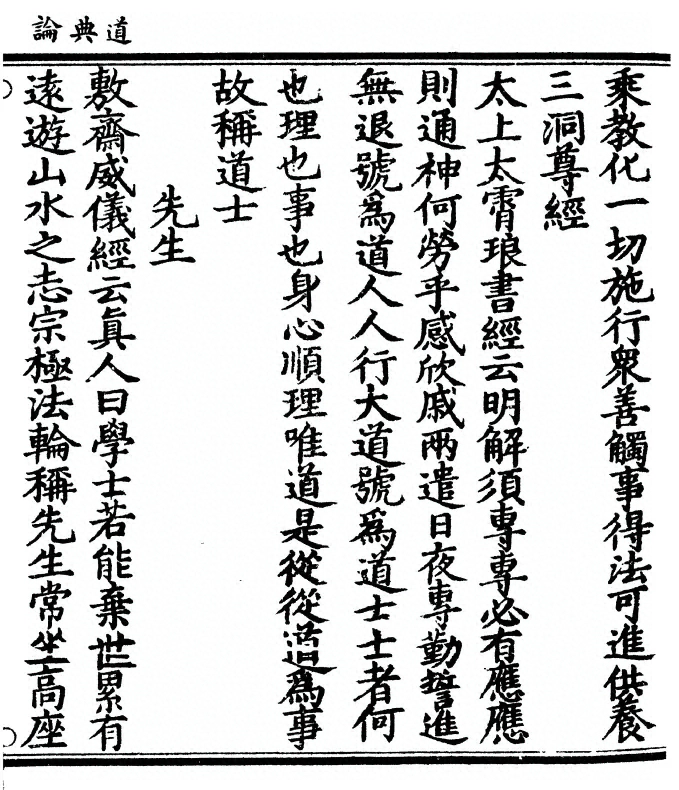 道典論
乘教化一切施行衆善觸事得法可進供養
三洞尊經
太上太霄琅書經云明解須專專必有應應
則通神何勞乎感欣戚兩遣日夜專勤誓進
無退號爲道人人行大道號爲道士士者何
也理也事也身心順理唯道是從從道爲事
故稱道士
先生
敷齋威儀經云眞人曰學士若能棄世累有
遠遊山水之志宗極法輪稱先生常坐高座